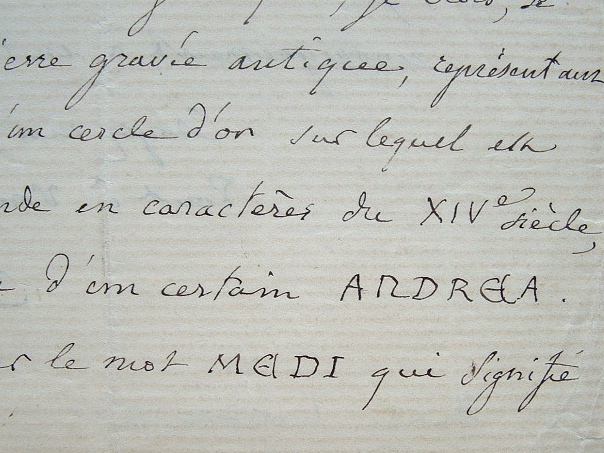 je crois, se
ierre gravée antique, représentant
d'un cercle d'or sur lequel est
nde en caractères du XIVe siècle,
d'un certain ANDREA.
r le mot MEDI qui signifie